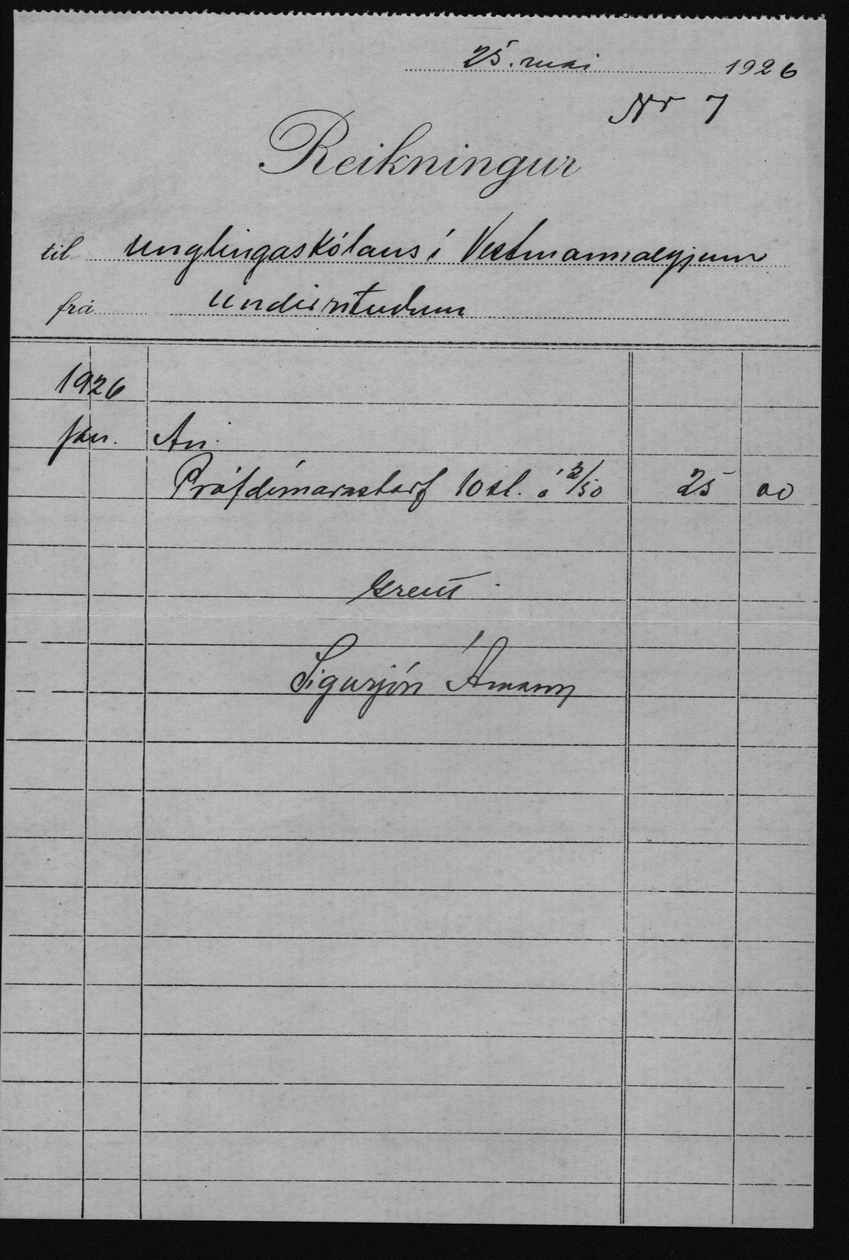 25. mai 1926
Nr 7
Reikningur
til unglingaskólans í Vestmannaeyjum
frá undirrituðum
1926
jan. An:
Prófdómarastarf 10 st. á 2/50 25 00
Greitt.
Sigurjón Árnason